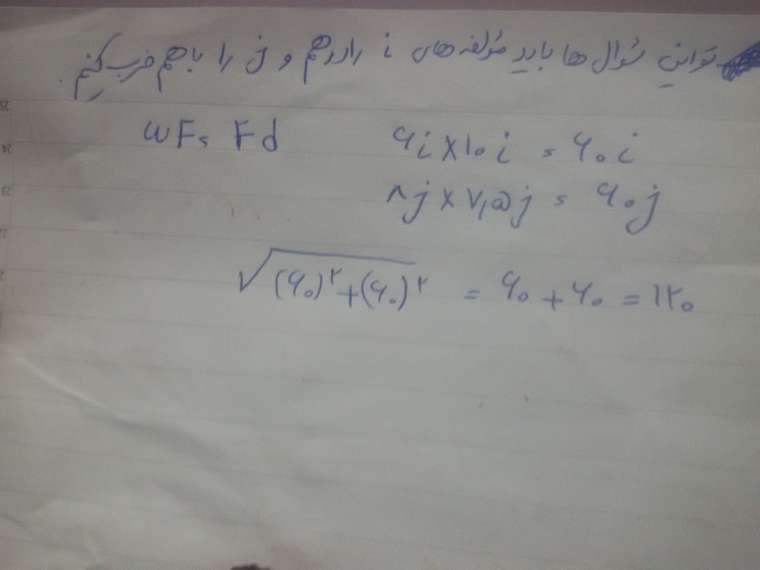 تو این سوال ها باید مؤلفه های i را در هم و j را با هم ضرب کنیم.
WF = Fd
۶i × ۱۰i = ۶۰i
۸j × ۷٫۵j = ۶۰j
√(۶۰)۲ + (۶۰)۲ = ۶۰ + ۶۰ = ۱۲۰